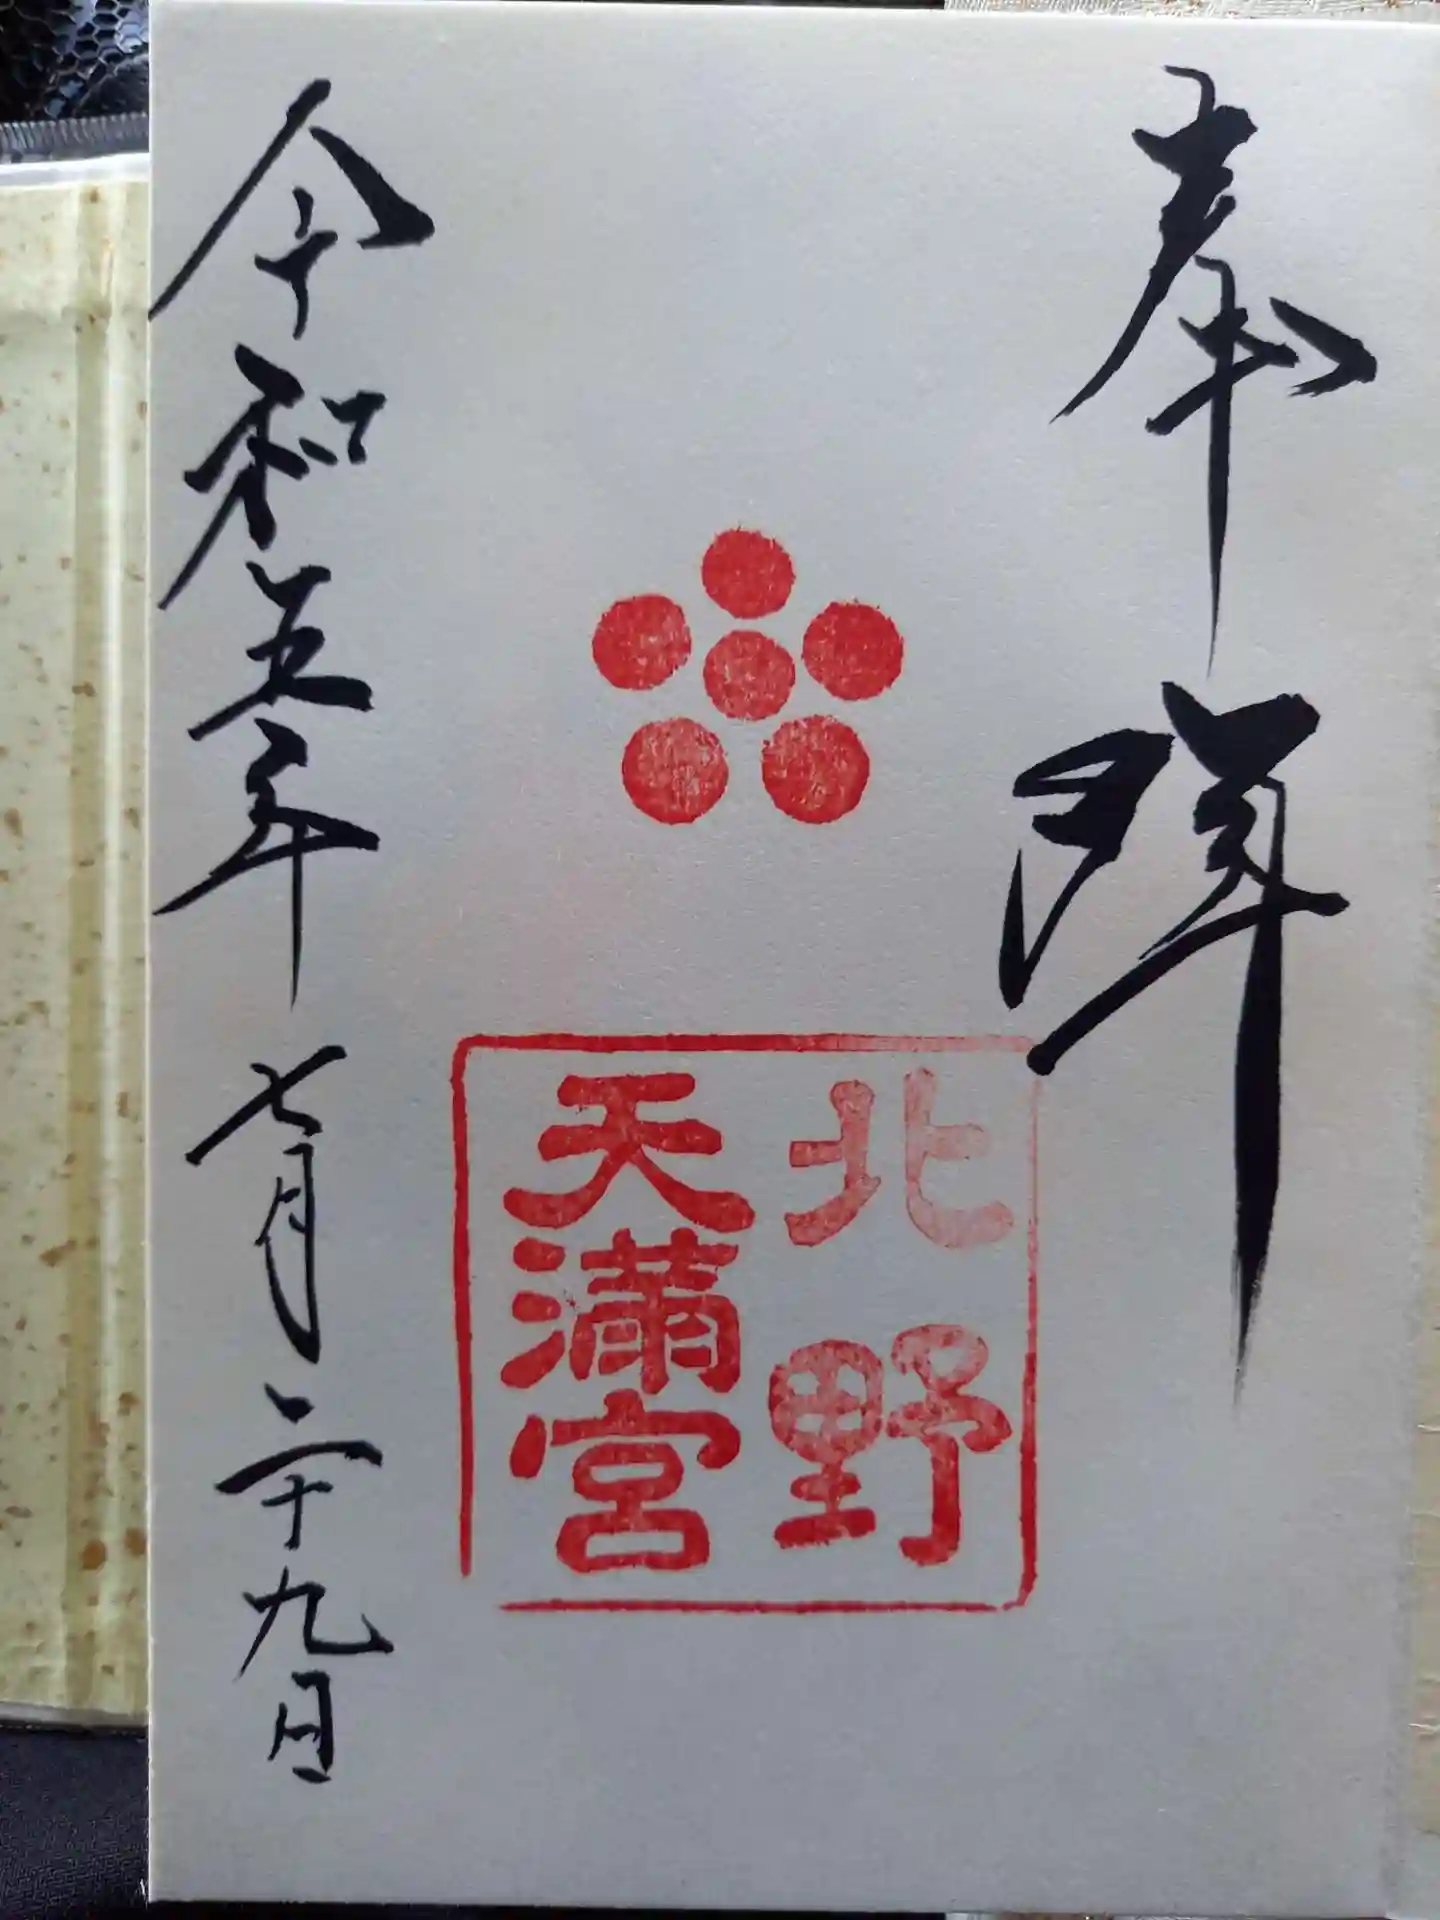 奉拝
北野
天満宮
令和五年七月二十九日